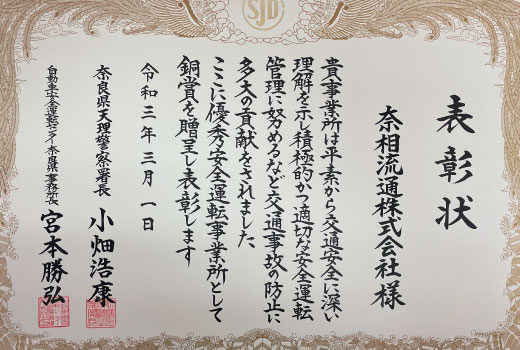 SJD
表彰状
奈相流通株式会社様
貴事業所は平素から交通安全に深い
理解を示し積極的かつ適切な安全運転
管理に努めるなど交通事故の防止に
多大の貢献をされました
ここに優秀安全運転事業所として
銅賞を贈呈し表彰します
令和三年三月一日
奈良県天理警察署長 小畑浩康
自動車安全運転センター奈良県事務所長 宮本勝弘